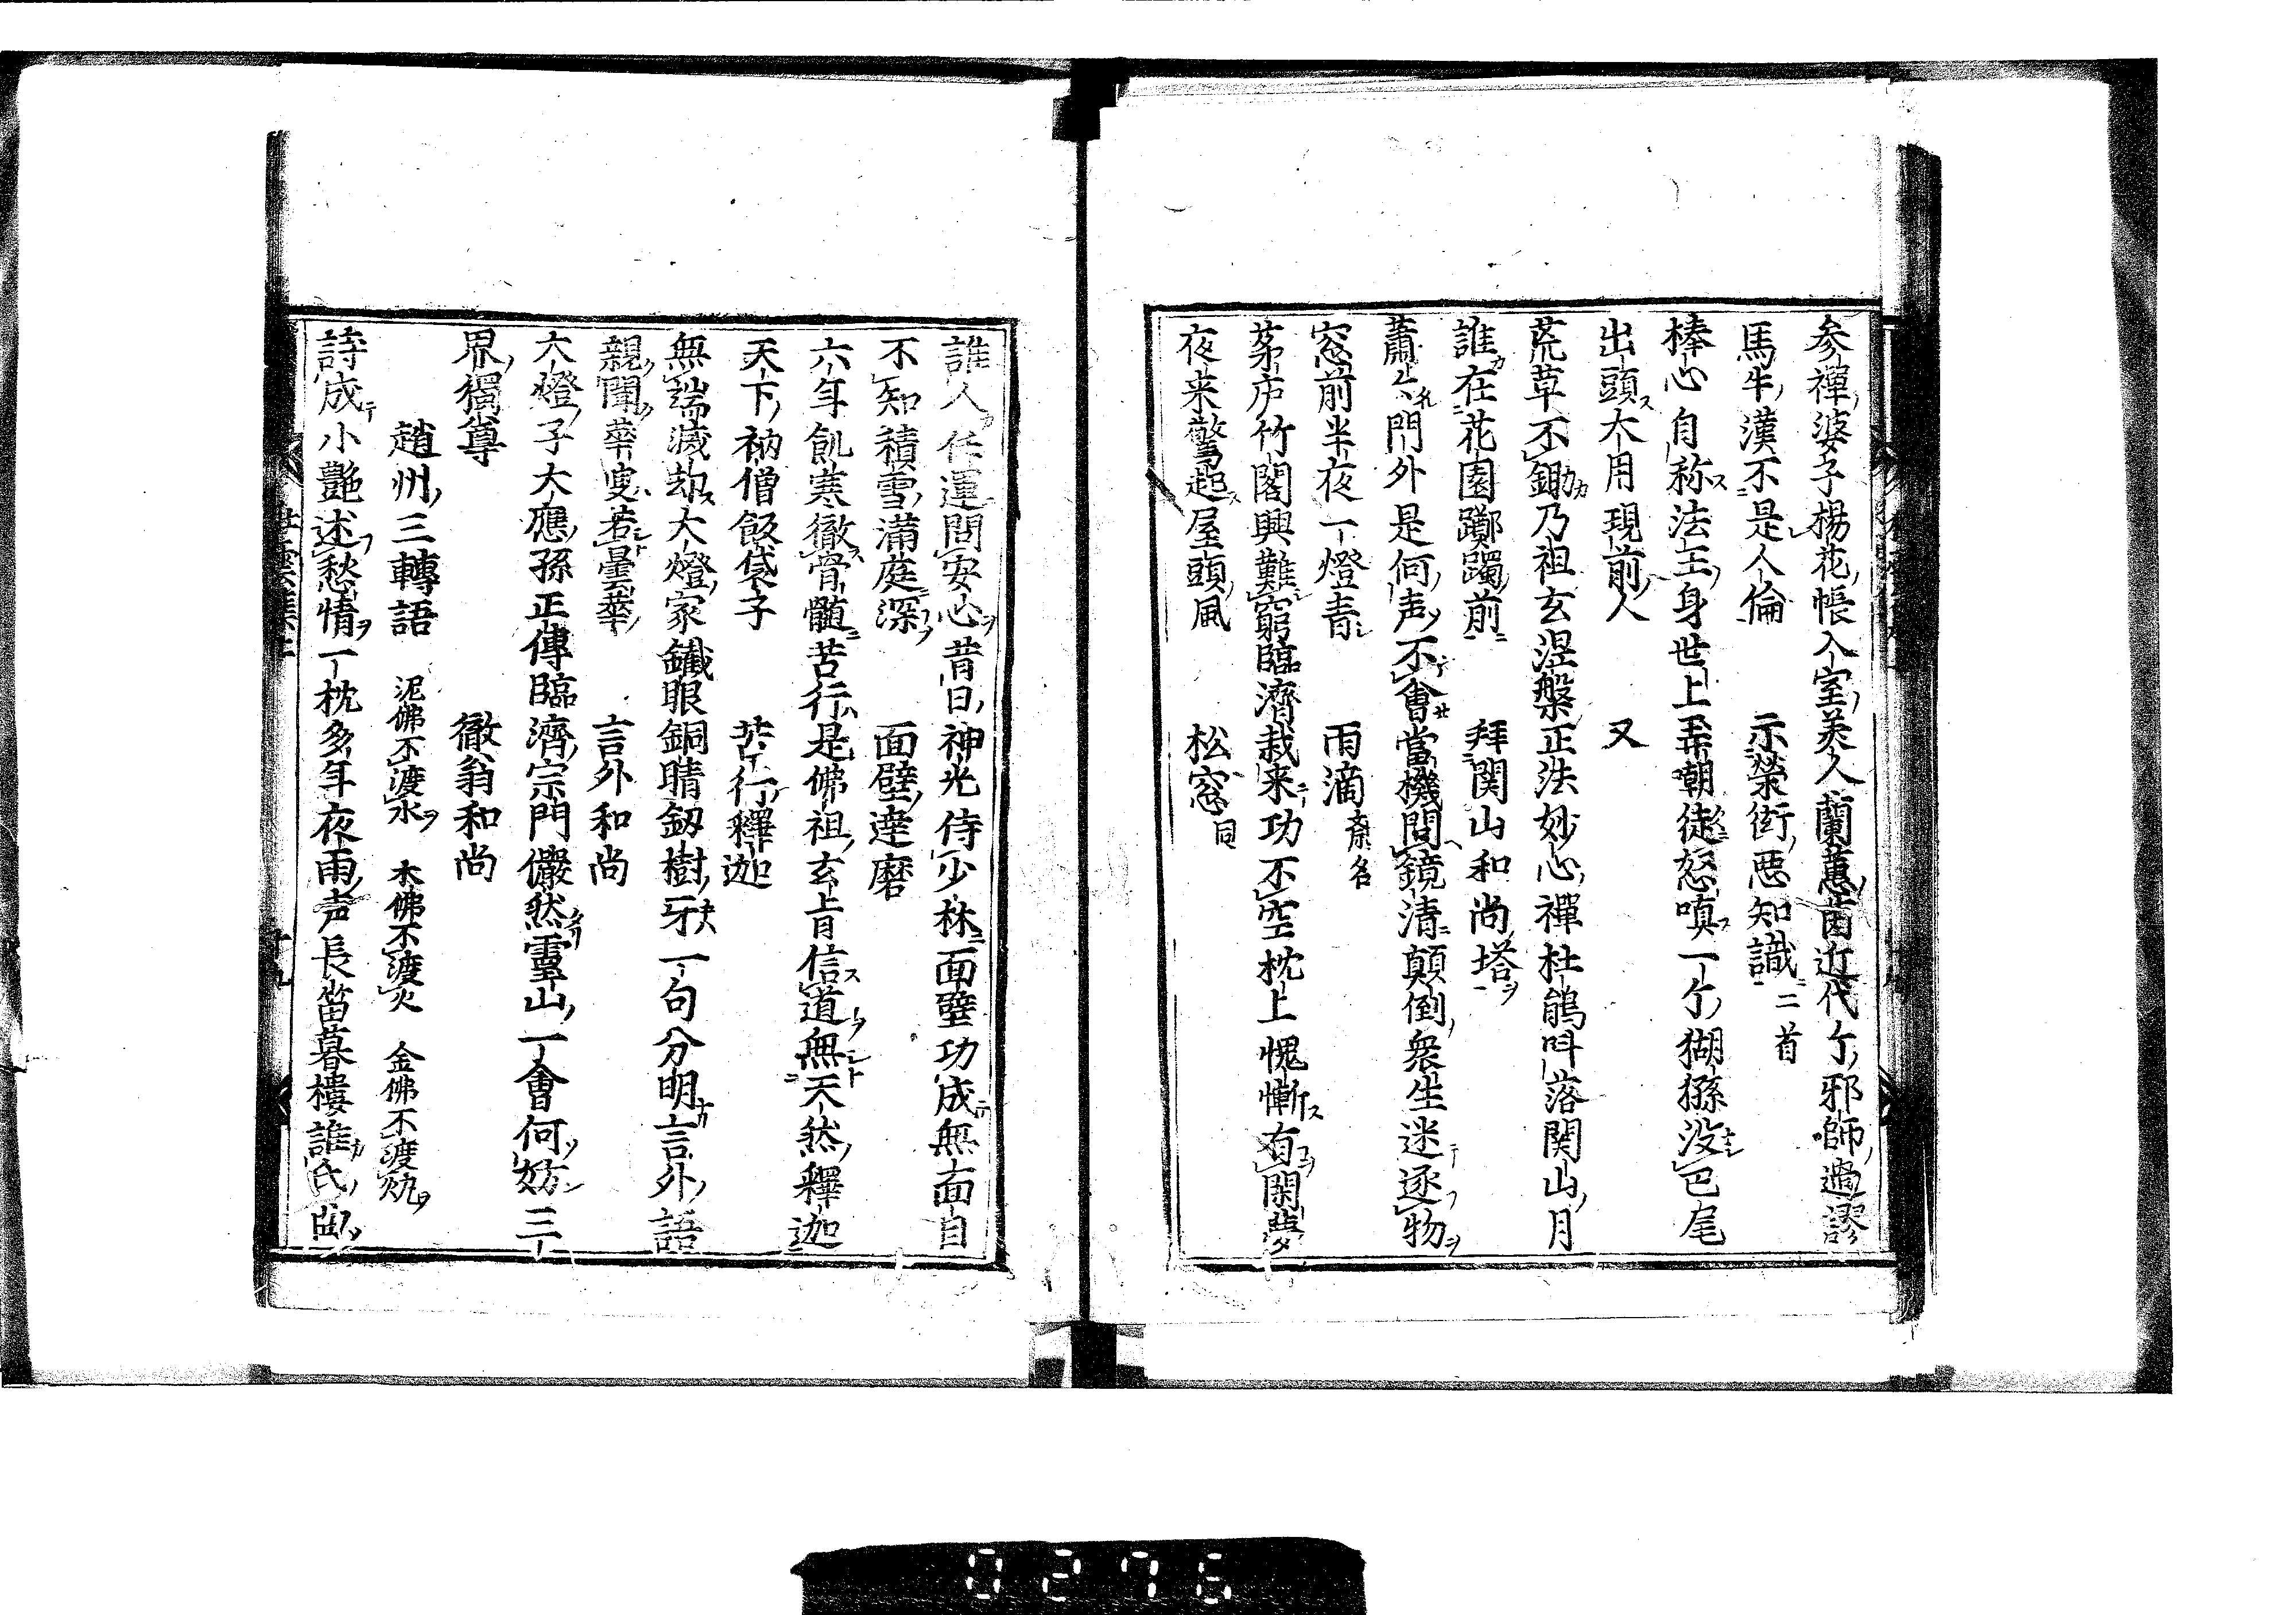 参禅婆子楊花帳入室美人蘭蕙茵近代久邪師過謬
馬牛漢不是人倫　示榮衒惡知識二首
棒心自称法王身世上弄嘲徒怒嗔一个猢猻没巴尾
出頭大用現前人　又
荒草不鋤乃祖玄涅槃正法妙心禅杜鵑叫落関山月
誰在花園躑躅前　拜関山和尚塔
蕭々門外是何声不會當機問鏡清顛倒衆生迷逐物
窓前半夜一燈青　雨滴齋名
茅庐竹閣興難窮臨濟栽来功不空枕上愧慚有閑夢
夜来驚起屋頭風　松窓同
誰人任運問安心昔日神光侍少林面壁功成無面目
不知積雪滿庭深　面壁達磨
六年飢寒徹骨髄苦行是佛祖玄旨信道無天然釋迦
天下衲僧飯袋子　苦行釋迦
無端滅却大燈家鐵眼銅睛釼樹牙一句分明言外語
親聞華叟若曇華　言外和尚
大燈子大應孫正傳臨濟宗門儼然靈山一會何妨三
界獨尊　徹翁和尚
趙州三轉語　泥佛不渡水　木佛不渡火　金佛不渡炉
詩成小艶述愁情一枕多年夜雨声長笛暮樓誰氏曲